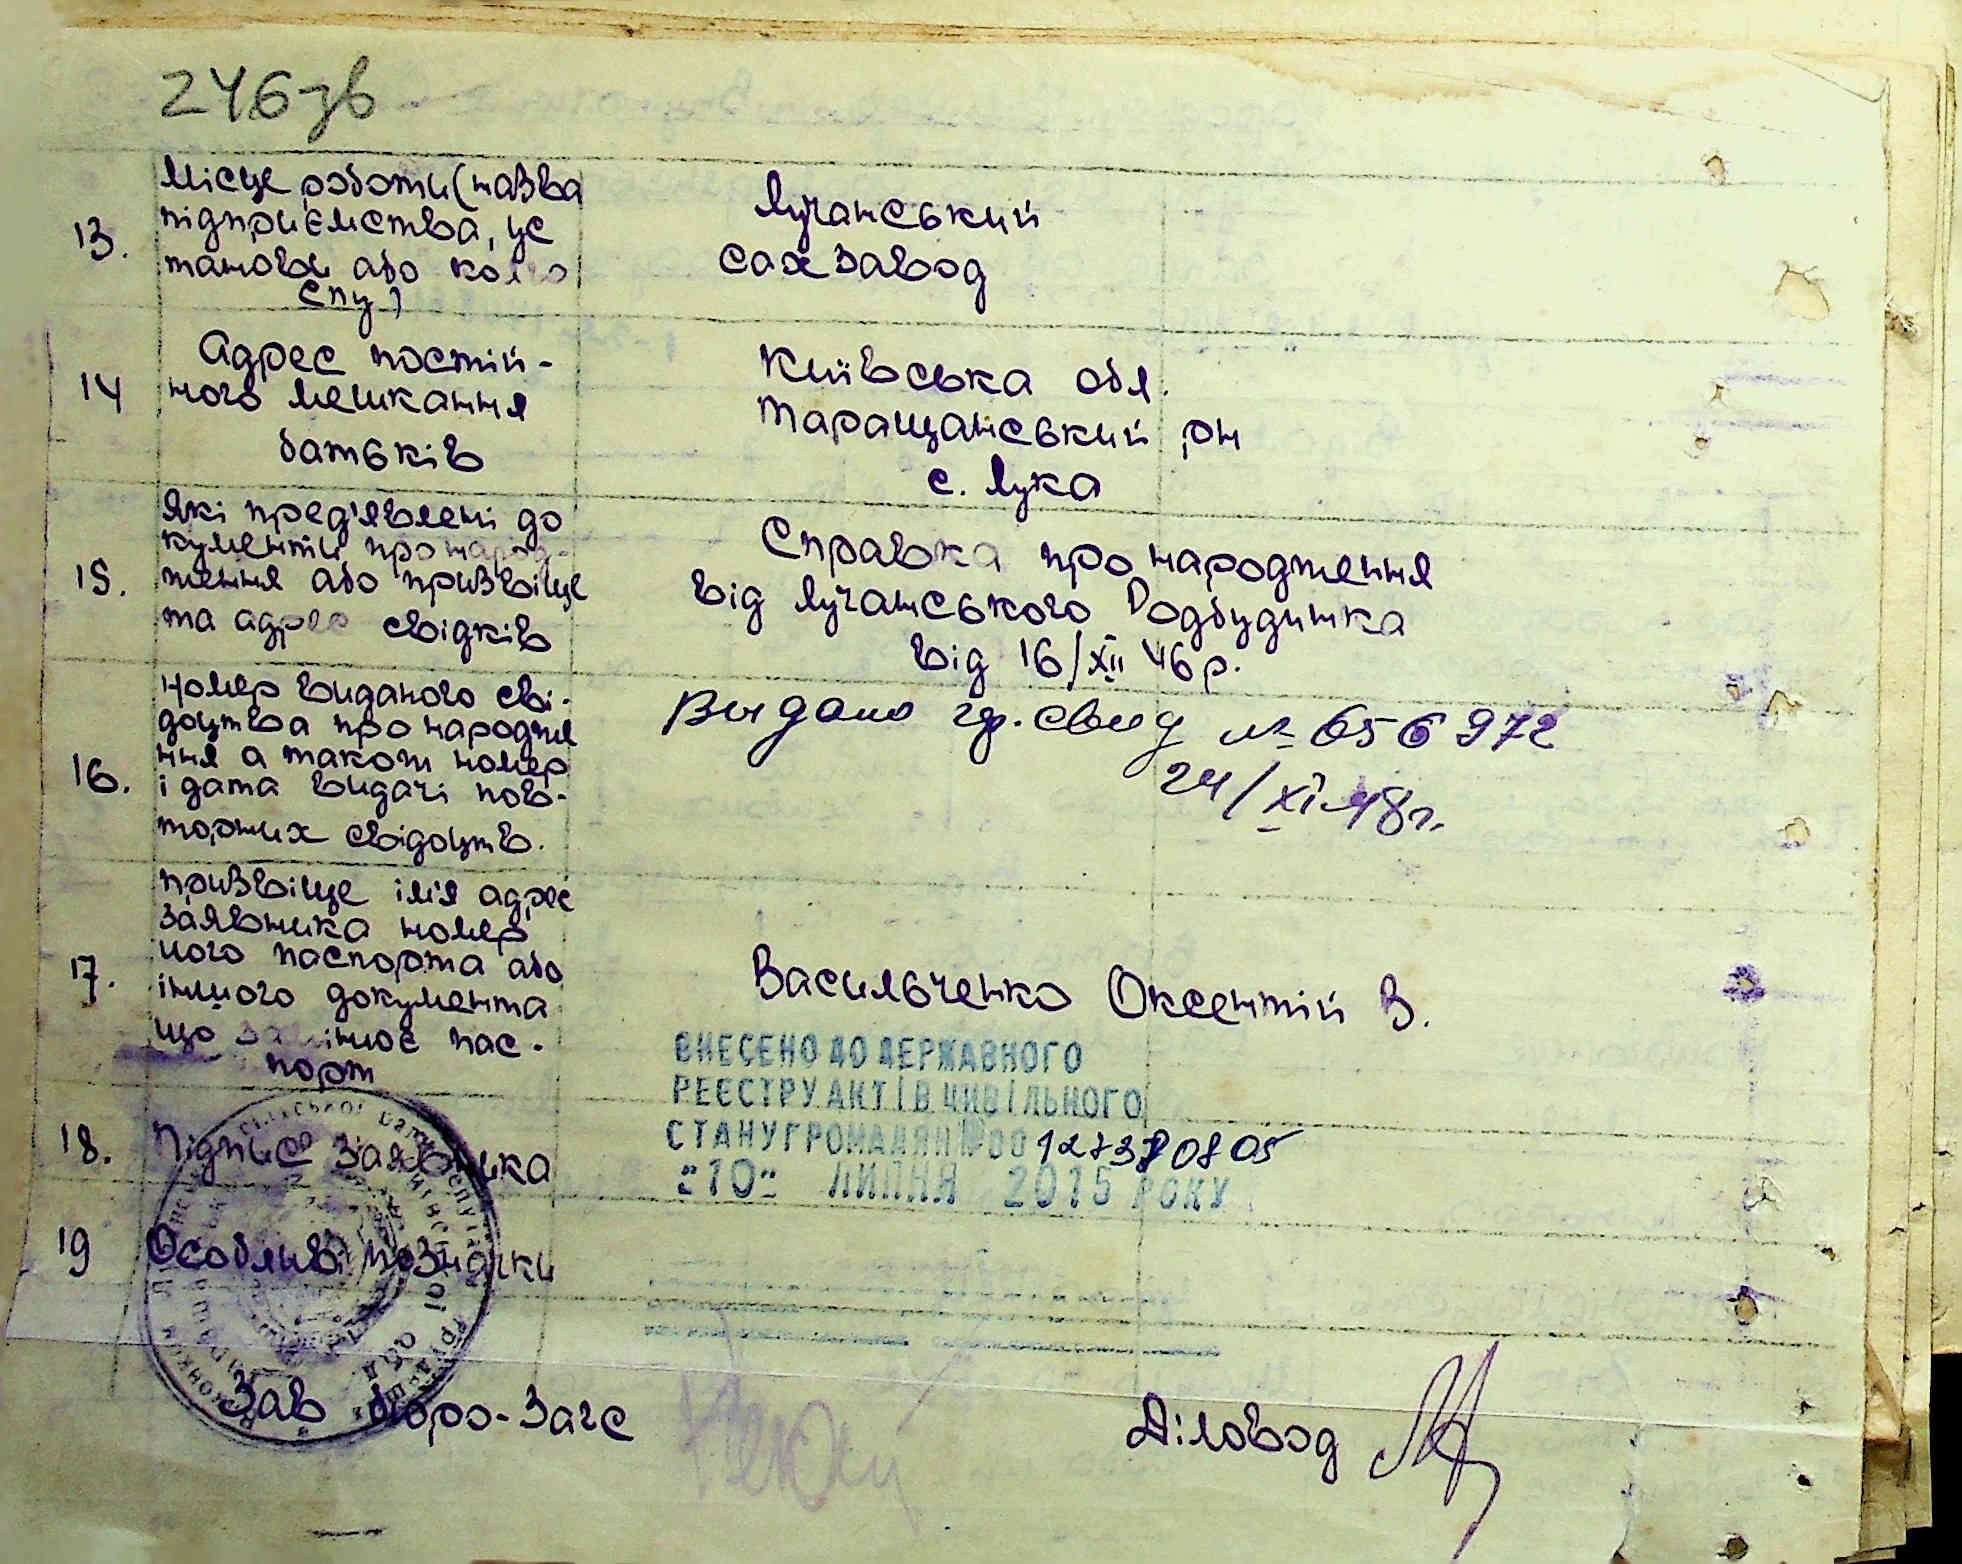 246зв
13.
Місце роботи (назва
підприємства, ус
танови або колго
спу)
Лучанський
сахзавод
14
Адрес постій-
ного мешкання
батьків
Київська обл.
Таращанський рн
с. Лука
15.
Які пред'явлені до
кументи про народ-
ження або призвіще
та адрес свідків
Справка про народження
від Лучанського Родбудинка
від 16/XII 46р.
16.
Номер виданого сві-
доцтва про народже
ння а також номер
і дата видачі пов-
торних свідоцтв.
Выдано гр. свид № 656972
24/XI-48г.
17.
призвіще ім'я адрес
заявника номер
його паспорта або
іншого документа
що замінює пас-
порт
Васильченко Оксентій В.
ВНЕСЕНО ДО ДЕРЖАВНОГО
РЕЄСТРУ АКТІВ ЦИВІЛЬНОГО
СТАНУ ГРОМАДЯН №00
"10" ЛИПНЯ 2015 РОКУ
18.
Підпис заявника
19
Особливі позначки
Зав бюро-Загс
Діловод